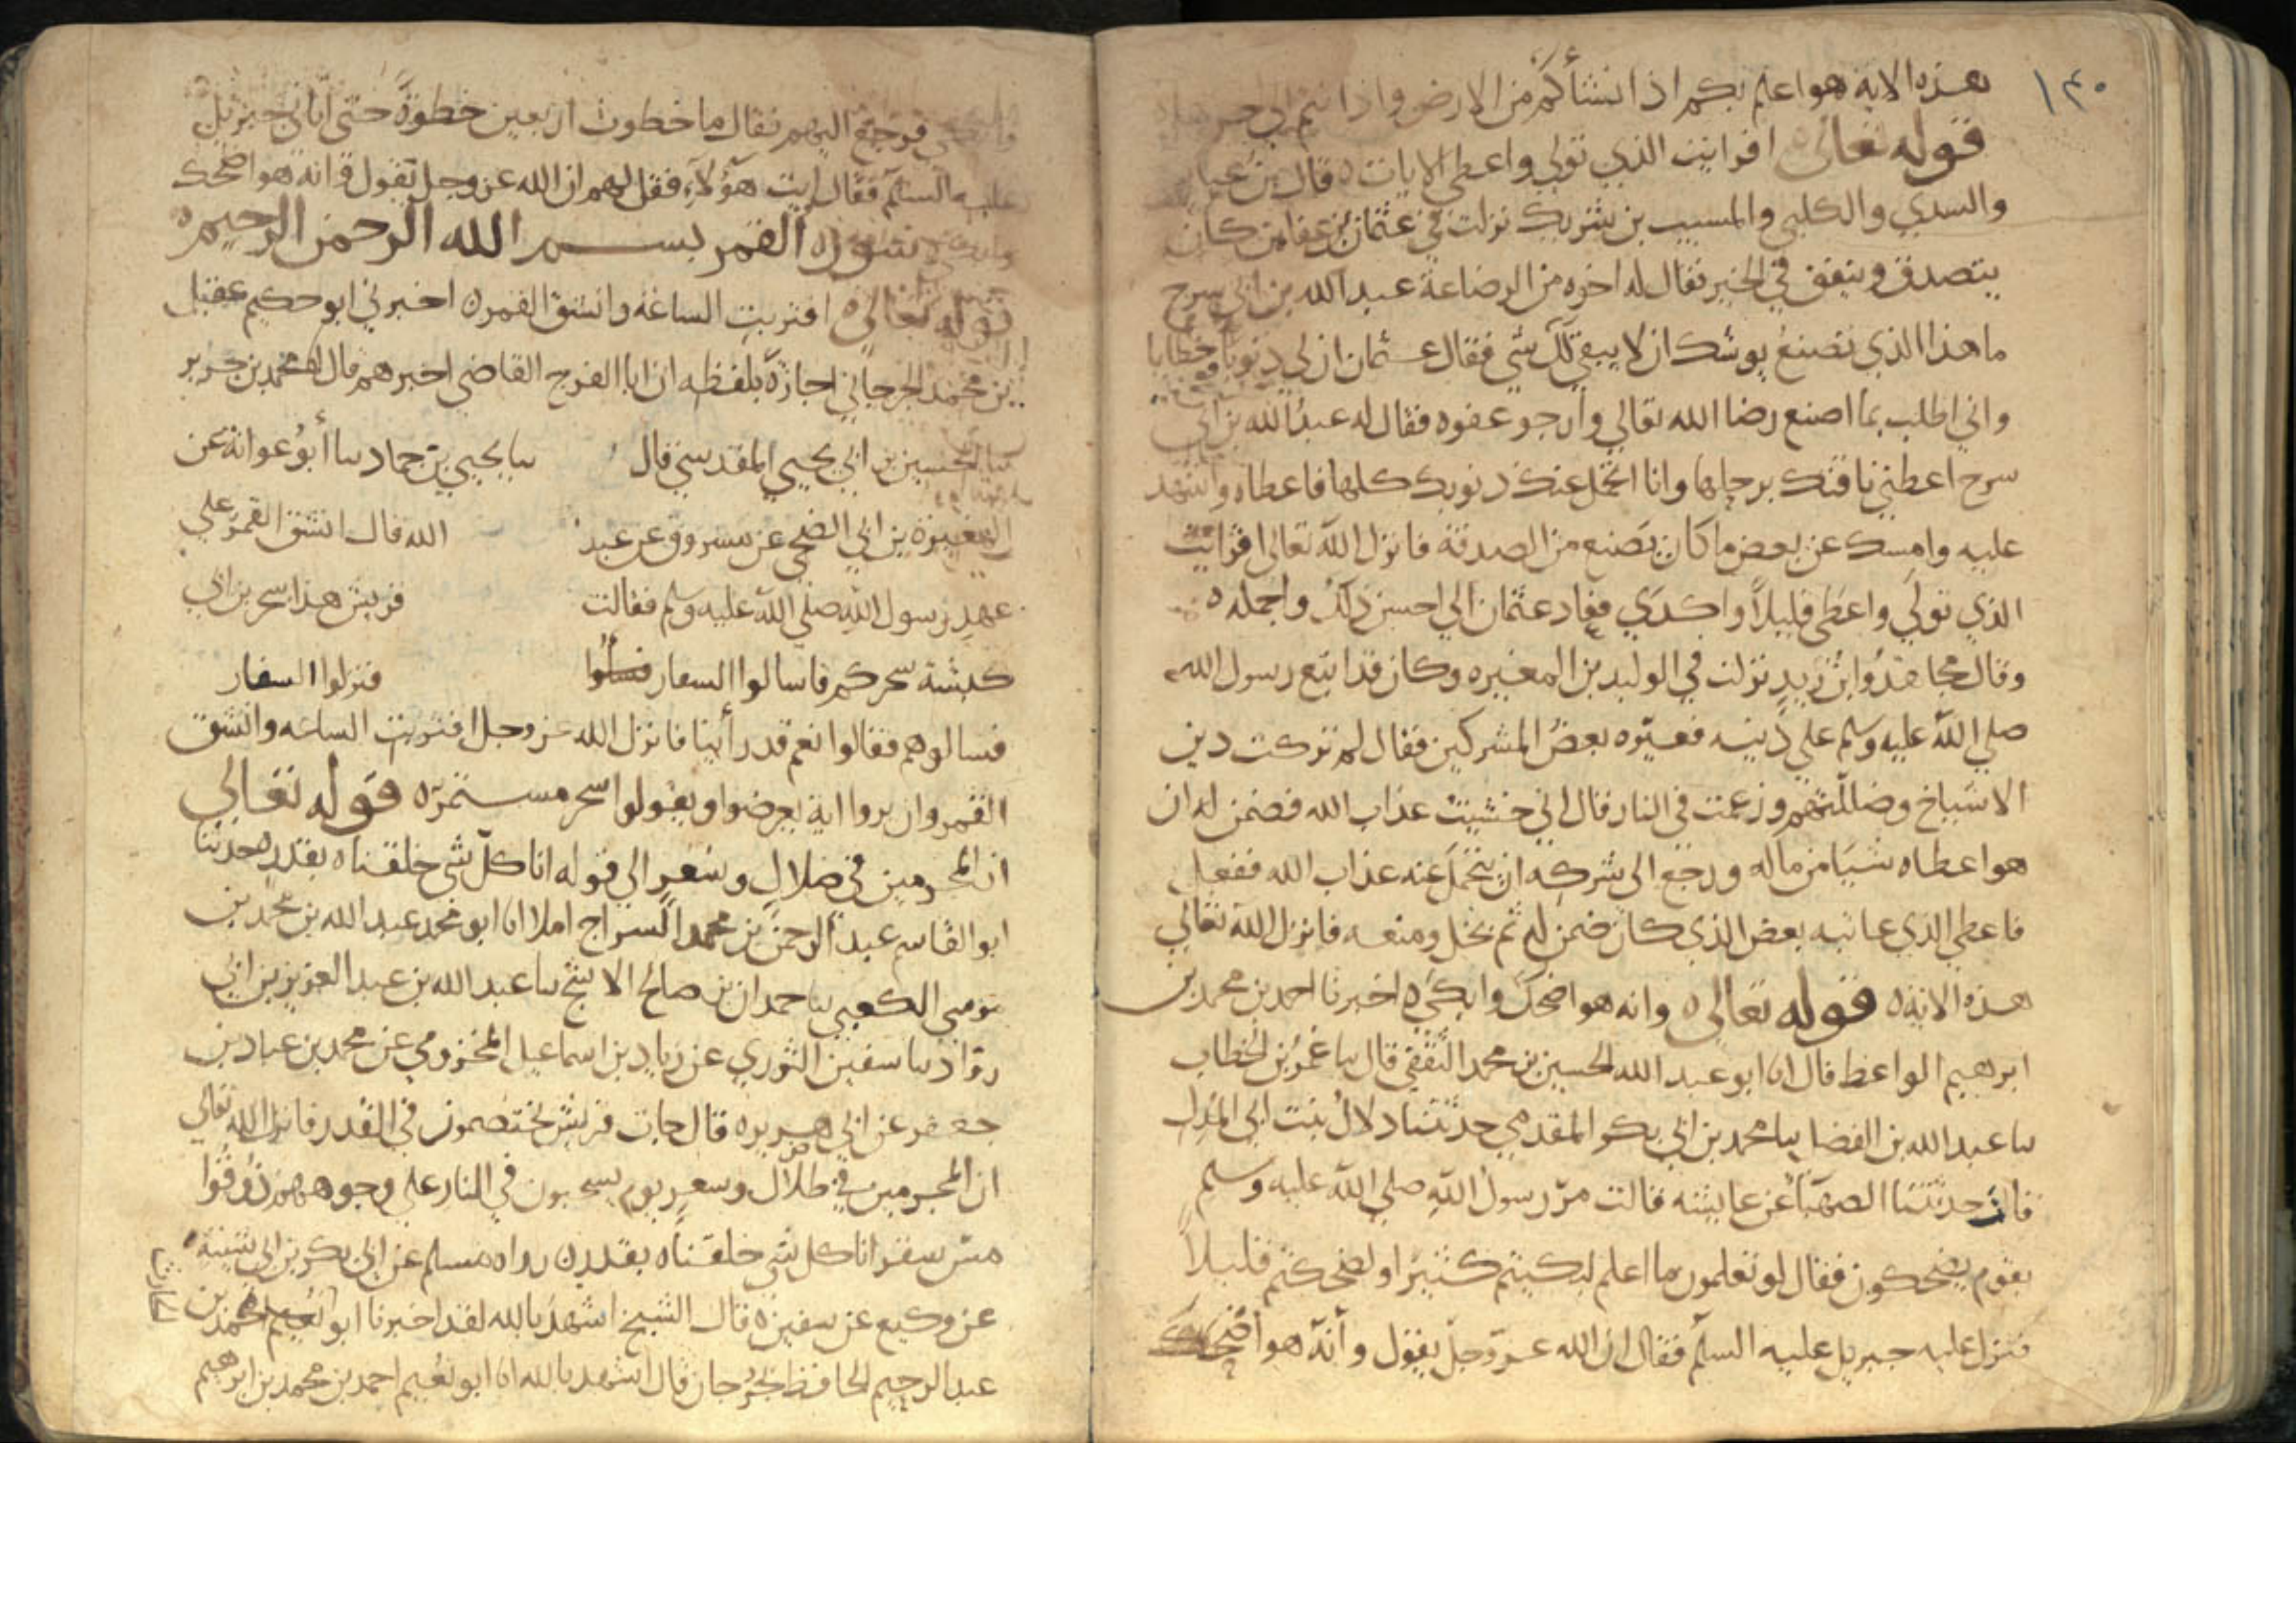 ١٣٠
هذه الاية هو اعلم بكم اذ انشأكم من الارض واذ انتم
قوله تعالى افرايت الذي تولي واعطي الايات ه قال بن عباس
والسدي والكلبي والمسيب بن شريك نزلت في عثمان بن عفان كان
يتصدق وينفق في الخير فقال له اخوه من الرضاعة عبد الله بن ابي سرح
ما هذا الذي تصنع يوشك ان لا يبقي لك شي فقال عثمان ان لي ذنوبا وخطايا
واني اطلب بما اصنع رضا الله تعالي وارجو عفوه فقال له عبد الله بن ابي
سرح اعطني ناقتك برحلها وانا اتحمل عنك ذنوبك كلها فاعطاه واشهد
عليه وامسك عن بعض ما كان يصنع من الصدقة فانزل الله تعالى افرايت
الذي تولي واعطي قليلاً واكدي فعاد عثمان الي احسن ذلك واجمله ه
وقال مجاهد وابن زيد نزلت في الوليد بن المغيره وكان قد اتبع رسول الله
صلي الله عليه وسلم علي دينه فعيّره بعضُ المشركين فقال لم تركت دين
الاشياخ وضللتهم وزعمت في النار قال اني خشيت عذاب الله فضمن له ان
هو اعطاه شيا من ماله ورجع الى شركه ان يتحمل عنه عذاب الله ففعل
فاعطي الذي عاتبه بعض الذي كان ضمن له ثم بخل ومنعه فانزل الله تعالي
هذه الاية ه قوله تعالى ه وانه هو اضحك وابكي ه اخبرنا احمد بن محمد بن
ابرهيم الواعظ قال انا ابو عبد الله الحسين بن محمد الثقفي قال سا عمر بن الخطاب
سا عبد الله بن الفضل سا محمد بن ابي بكر المقدمي حدثتنا دلال بنت ابي المدل
قالت حدثتنا الصهبا عن عايشه قالت مرّ رسول الله صلي الله عليه وسلم
بقوم يضحكون فقال لو تعلمون ما اعلم لبكيتم كثيرًا ولضحكتم قليلاً
فنزل عليه جبريل عليه السلم فقال ان الله عزّ وجلّ يقول وأنّه هو أضحك
فرجع اليهم فقال ما خطوت اربعين خطوةً حتى اتاني جبريل
عليه السلم فقال ايت هؤلآء فقل لهم ان الله عز وجل يقول وانه هو اضحك
وابكي سورة القمر بسم الله الرحمن الرحيم ه
قوله تعالى ه اقتربت الساعة وانشق القمر ه اخبرني ابو حكيم عقيل
بن محمد الجرجاني اجازةً بلفظه ان ابا الفرج القاضي اخبرهم قال انا محمد بن جرير
سا الحسين بن ابي يحيي المقدسي قال سا يحيي بن حماد سا أبو عوانة عن
المغيرة بن ابي الضحي عن مسروق عن عبد الله قال انشق القمر علي
عهد رسول الله صلي الله عليه وسلم فقالت قريش هذا سحر بن ابي
كبشة سحركم فاسالوا السفار فسألوا فنزلوا السفار
فسالوهم فقالوا نعم قد رأينا فانزل الله عز وجل اقتربت الساعه وانشق
القمر وان يروا اية يعرضوا ويقولوا سحر مستمر ه قوله تعالي
ان المجرمين في ضلال وسعر الي قوله انا كل شي خلقناه بقدر ه حدثنا
ابو القاسم عبد الرحمن بن محمد السراج املا انا ابو محمد عبد الله بن محمد بن
موسي الكعبي سا حمدان بن صالح الاشج سا عبد الله بن عبد العزيز بن ابي
روّاد سا سفين الثوري عن زياد بن اسماعيل المخزومي عن محمد بن عباد بن
جعفر عن ابي هريره قال جات قريش يختصمون في القدر فانزل الله تعالي
ان المجرمين في ظلال وسعر يوم يسحبون في النار علي وجوههم ذوقوا
مس سقر انا كل شي خلقناه بقدر ه رواه مسلم عن ابي بكر بن ابي شيبة
عن وكيع عن سفين ه قال الشيخ اشهد بالله لقد اخبرنا ابو احمد بن
عبد الرحيم الحافظ بجرجان قال اشهد بالله انا ابو نعيم احمد بن محمد بن ابرهيم